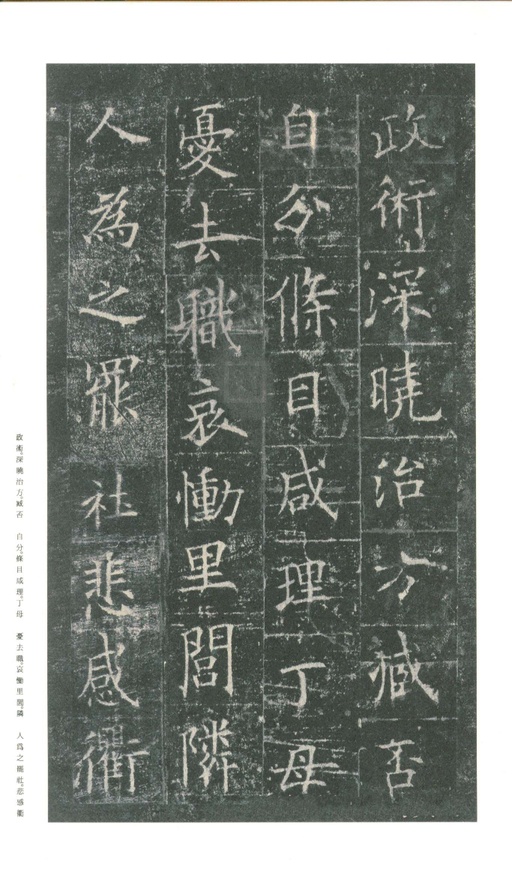 政術深曉治方臧否
自分條目咸理丁母
憂去職哀慟里閭隣
人為之罷社悲感衢
政術深曉治方臧否 自分條目咸理丁母 憂去職哀慟里閭隣 人為之罷社悲感衢